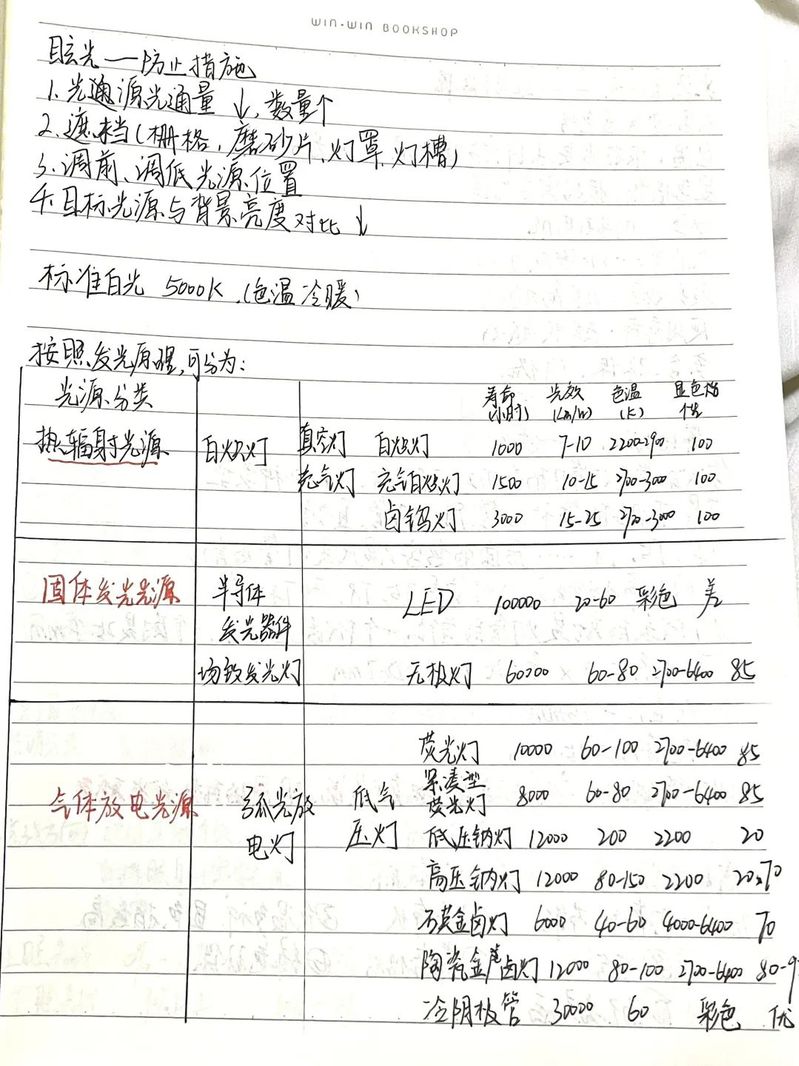 WIN·WIN BOOKSHOP
眩光——防止措施
1. 光源光通量↓,数量个
2. 遮挡(栅格,磨砂片、灯罩、灯槽)
3. 调前、调低光源位置
4. 目标光源与背景亮度对比↓
标准白光 5000K.(色温冷暖)
按照发光原理,可分为:
光源分类 寿命(小时) 光效(Lm/W) 色温(K) 显色指
热辐射光源 白炽灯 真空灯 白炽灯 1000 7-10 2200-2900 100
充气灯 充气白炽灯 1500 10-15 2700-3000 100
卤钨灯 3000 15-25 2700-3000 100
固体发光光源 半导体发光器件 LED 100000 20-60 彩色 差
场致发光灯 无极灯 60000 60-80 2700-6400 85
荧光灯 10000 60-100 2700-6400 85
气体放电光源 弧光放电灯 低气压灯 紧凑型荧光灯 8000 60-80 2700-6400 85
低压钠灯 12000 200 2200 20
高压钠灯 12000 80-150 2200 20
石英金卤灯 6000 40-60 4000-6400 70
陶瓷金卤灯 12000 80-100 2700-6400 80-9
冷阴极管 30000 60 彩色 优